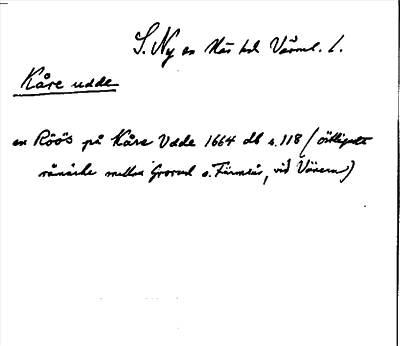 S. Ny en Näs hd Värml. l.
Kåre udde
en Röös på Kåre Udde 1664 db s. 118 (östligaste
råmärke mellan Grorud o. Färmsås, vid Vänern)